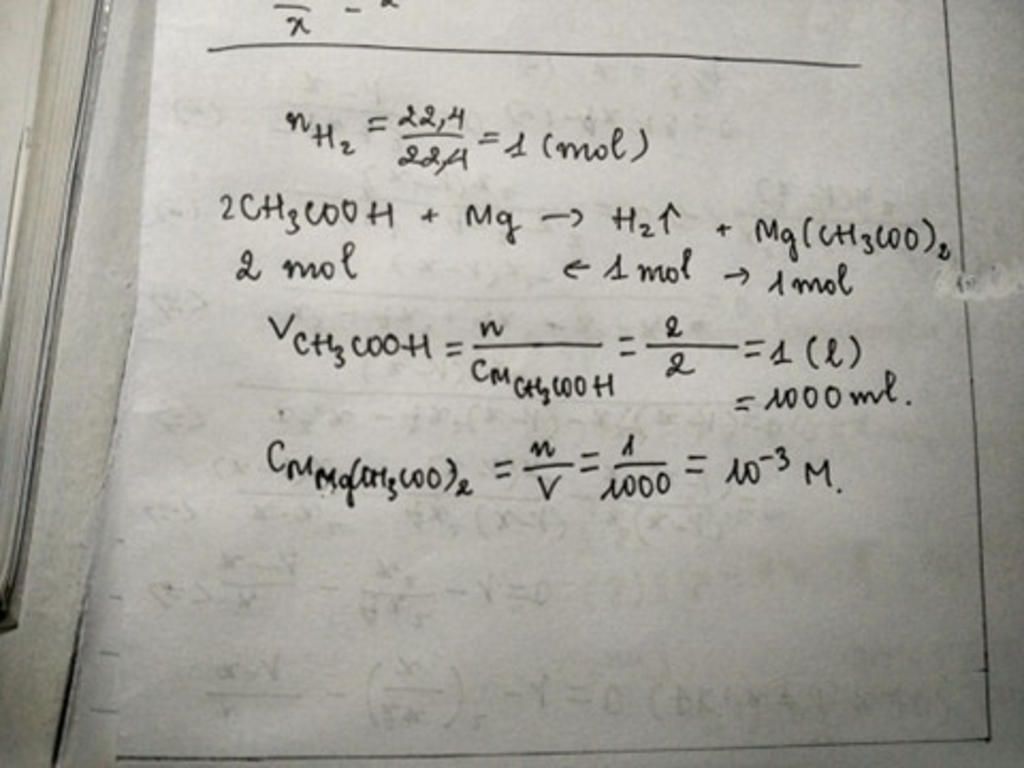 x - 2
n H₂ = 22,4/22,4 = 1 (mol)
2CH₃COOH + Mg → H₂↑ + Mg(CH₃COO)₂
2 mol ← 1 mol → 1 mol
V CH₃COOH = n/CM CH₃COOH = 2/2 = 1 (l)
= 1000 ml.
CM Mg(CH₃COO)₂ = n/V = 1/1000 = 10⁻³ M.